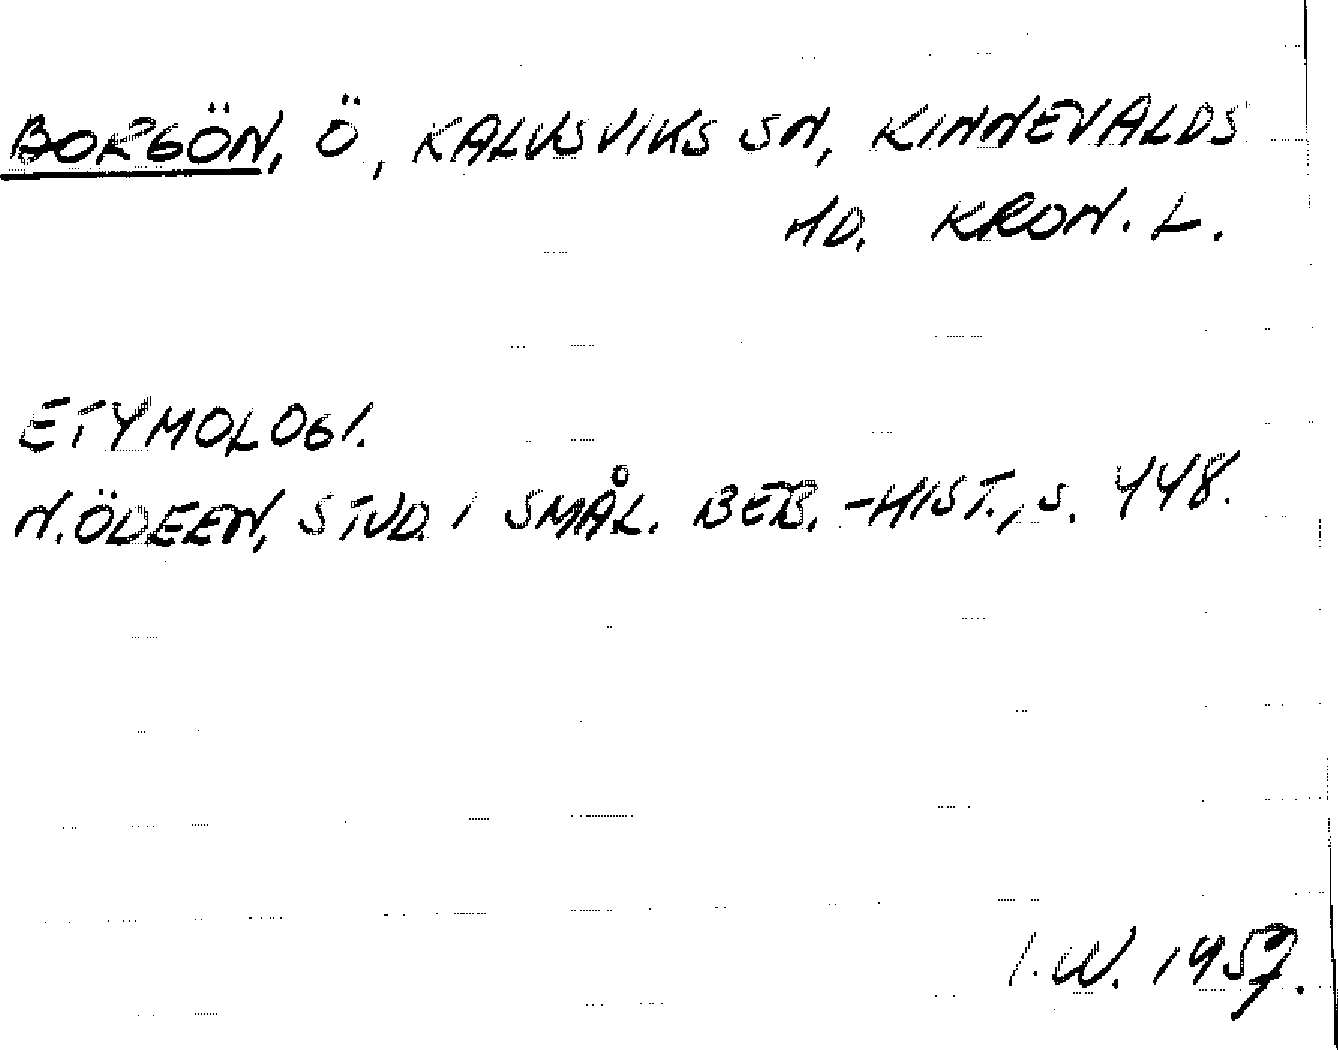 BORGÖN, Ö, KALVSVIKS SN, KINNEVALDS
HD. KRON. L.
ETYMOLOGI.
N. ÖDEEN, STUD. I SMÅL. BEB.-HIST., S. 448.
I.W. 1957.